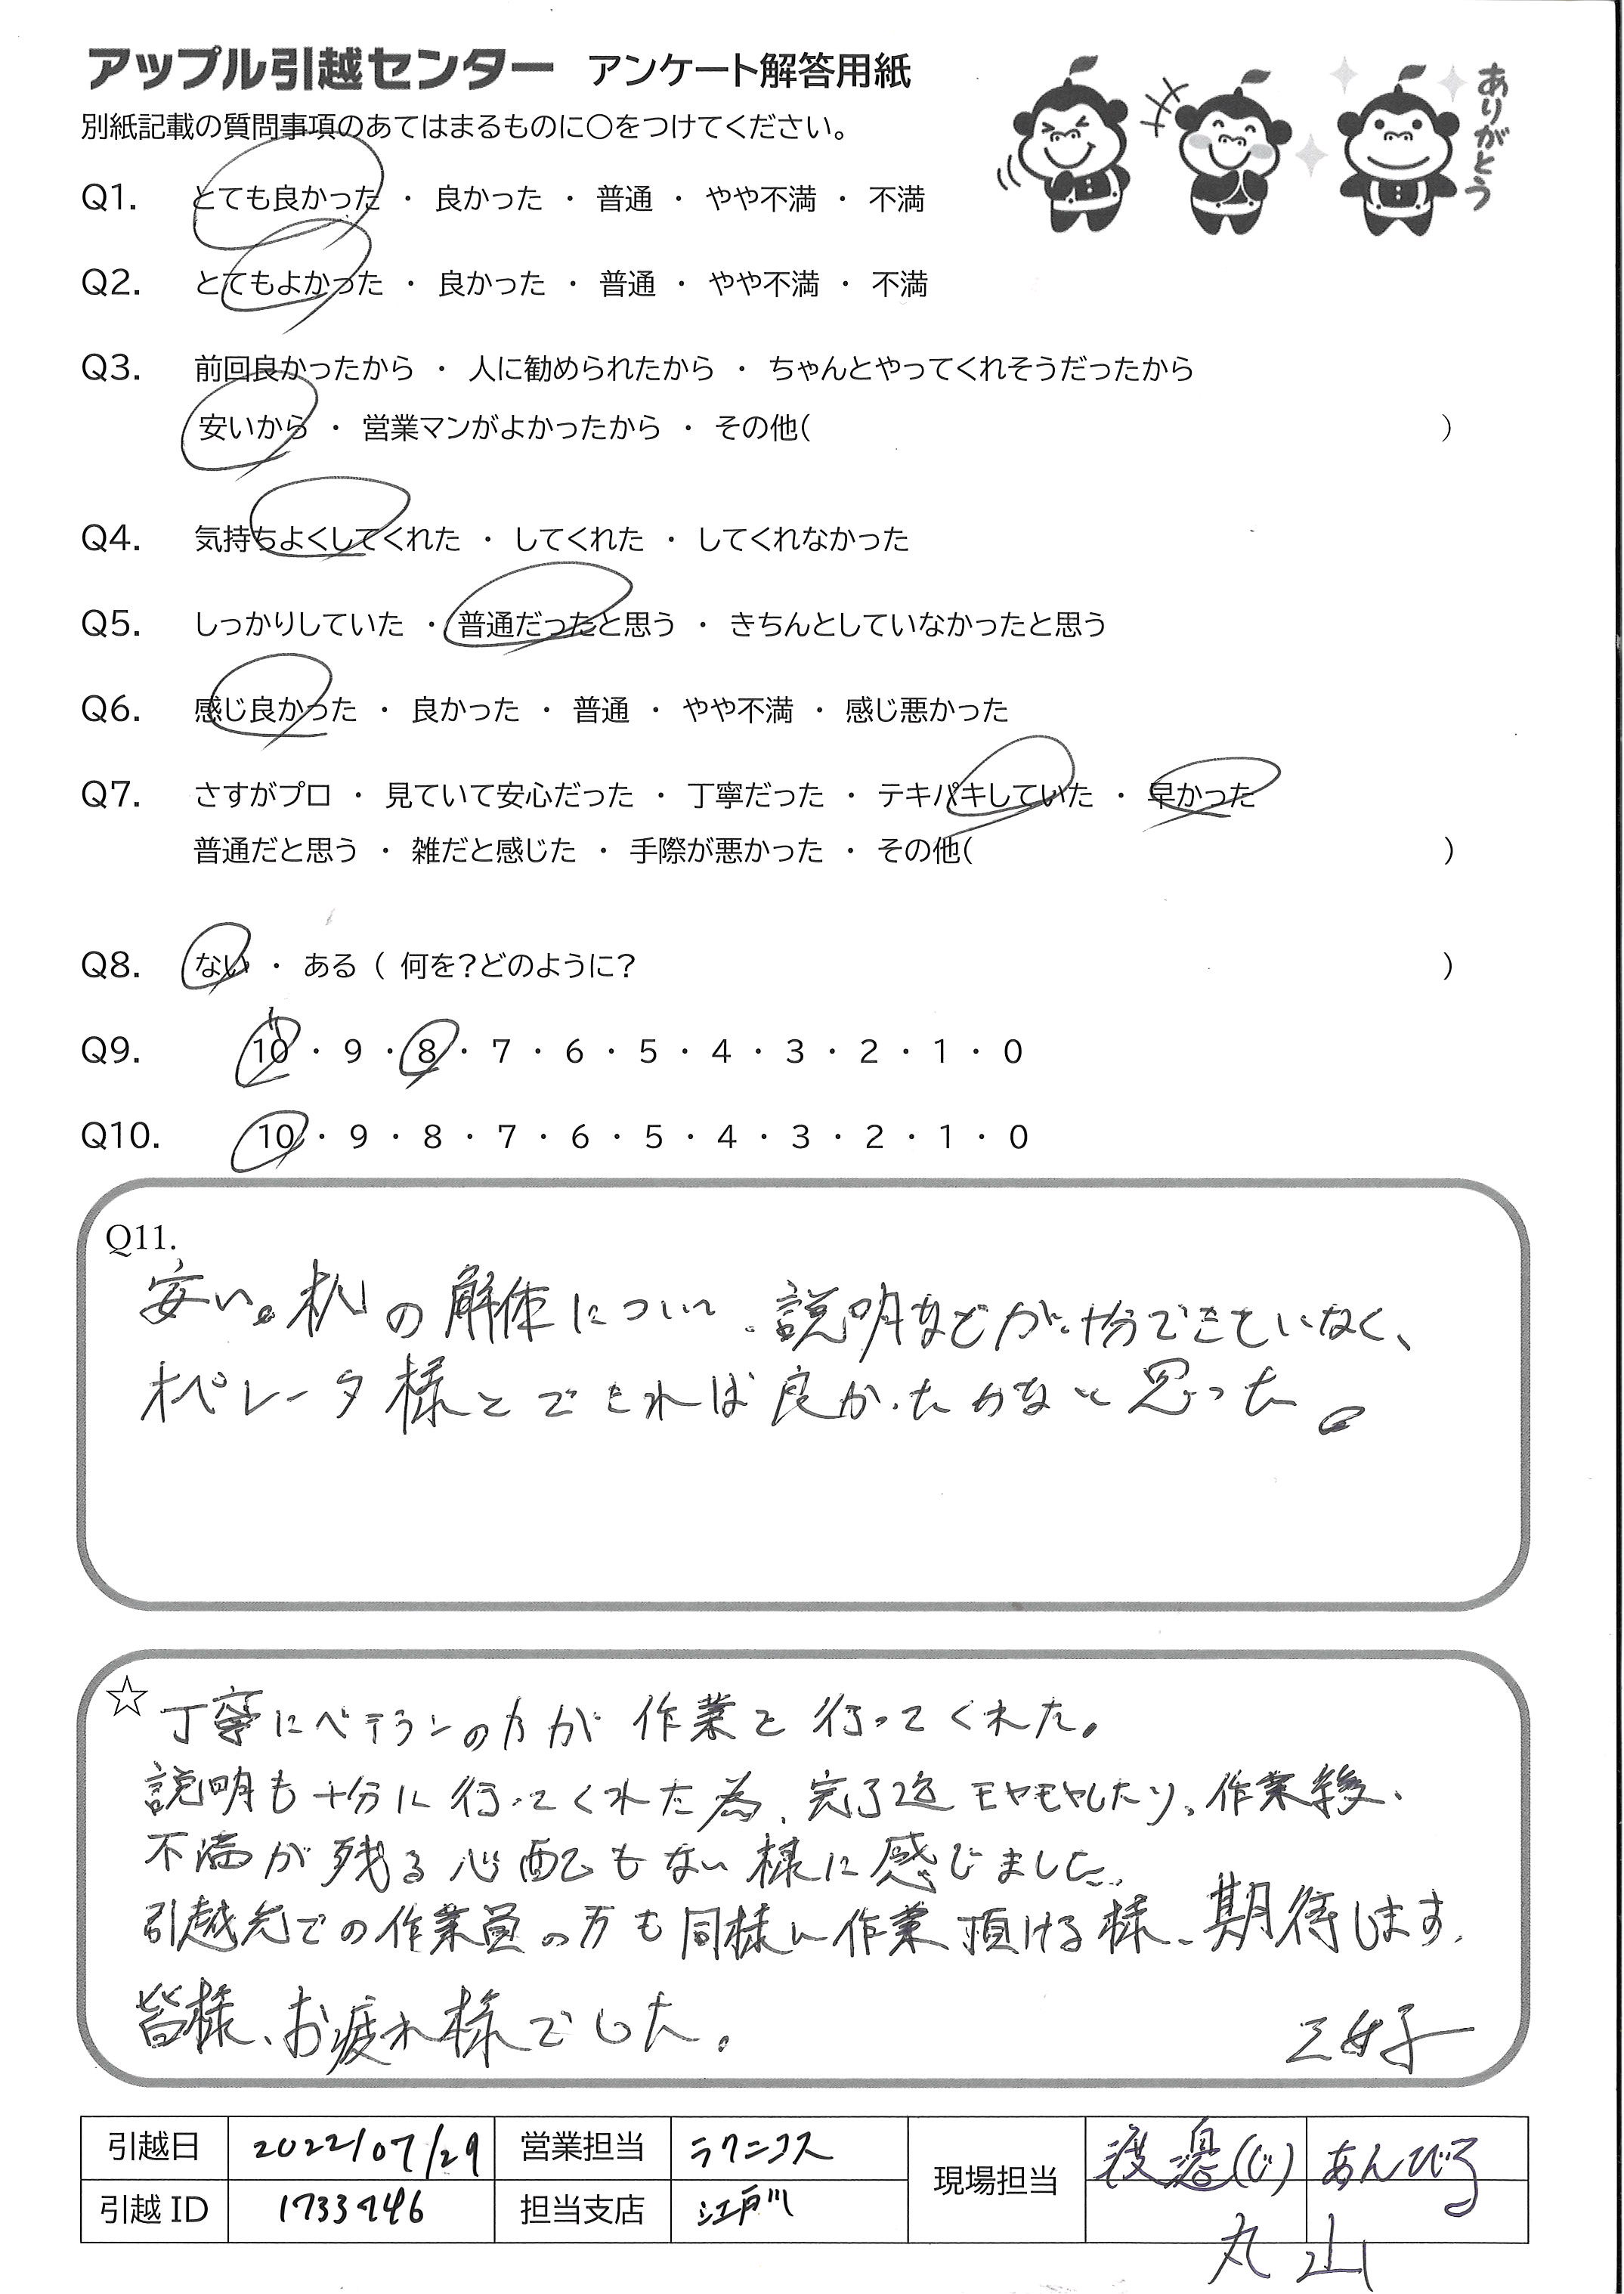 アップル引越センター アンケート解答用紙
ありがとう
別紙記載の質問事項のあてはまるものに○をつけてください。
Q1. とても良かった ・ 良かった ・ 普通 ・ やや不満 ・ 不満
Q2. とてもよかった ・ 良かった ・ 普通 ・ やや不満 ・ 不満
Q3. 前回良かったから ・ 人に勧められたから ・ ちゃんとやってくれそうだったから
安いから ・ 営業マンがよかったから ・ その他( )
Q4. 気持ちよくしてくれた ・ してくれた ・ してくれなかった
Q5. しっかりしていた ・ 普通だったと思う ・ きちんとしていなかったと思う
Q6. 感じ良かった ・ 良かった ・ 普通 ・ やや不満 ・ 感じ悪かった
Q7. さすがプロ ・ 見ていて安心だった ・ 丁寧だった ・ テキパキしていた ・ 早かった
普通だと思う ・ 雑だと感じた ・ 手際が悪かった ・ その他( )
Q8. ない ・ ある ( 何を?どのように? )
Q9. 10 ・ 9 ・ 8 ・ 7 ・ 6 ・ 5 ・ 4 ・ 3 ・ 2 ・ 1 ・ 0
Q10. 10 ・ 9 ・ 8 ・ 7 ・ 6 ・ 5 ・ 4 ・ 3 ・ 2 ・ 1 ・ 0
Q11.
安い。机の解体について、説明などが十分できていなく、
オペレータ様とできれば良かったかなと思った。
☆ 丁寧にベテランの方が作業を行ってくれた。
説明も十分に行ってくれた為、完了迄モヤモヤしたり、作業後、
不満が残る心配もない様に感じました。
引越先での作業員の方も同様に作業頂ける様、期待します。
皆様、お疲れ様でした。 三好
引越日 2022/07/29 営業担当 ラクニコス 現場担当 渡邉(じ) あんびる
引越ID 1733746 担当支店 江戸川
丸山